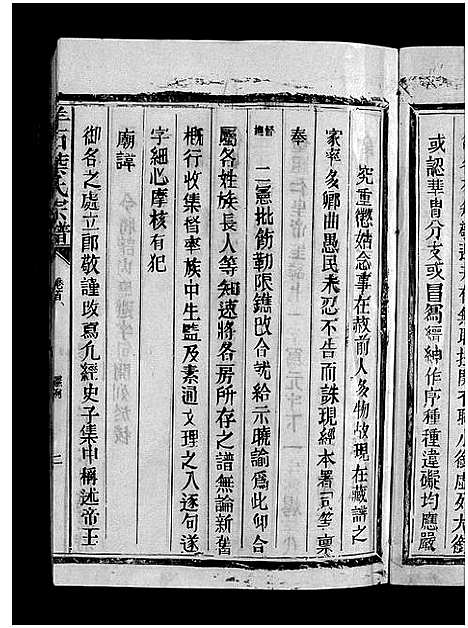 或認華胄分支或冒籍縉紳作序種種違礙均應嚴
究重懲姑念事在赦前人多物故現在藏譜之
家率多鄉曲愚民未忍不告而誅現經本署司等稟
奉
督撫二憲批飭勒限鐫改合就給示曉諭爲此仰合
屬各姓族長人等知速將各房所存之譜無論新舊
概行收集皆率族中生監及素通文理之人逐句逐
字細心摩核有犯
廟諱
御名之處立即敬謹改寫凡經史子集中稱述帝王
羊石葉氏宗譜
卷首